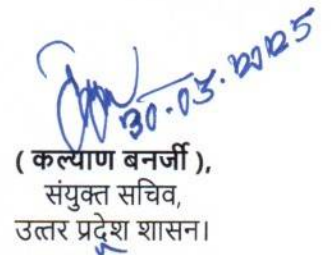 30-05-2025
( कल्याण बनर्जी ),
संयुक्त सचिव,
उत्तर प्रदेश शासन।